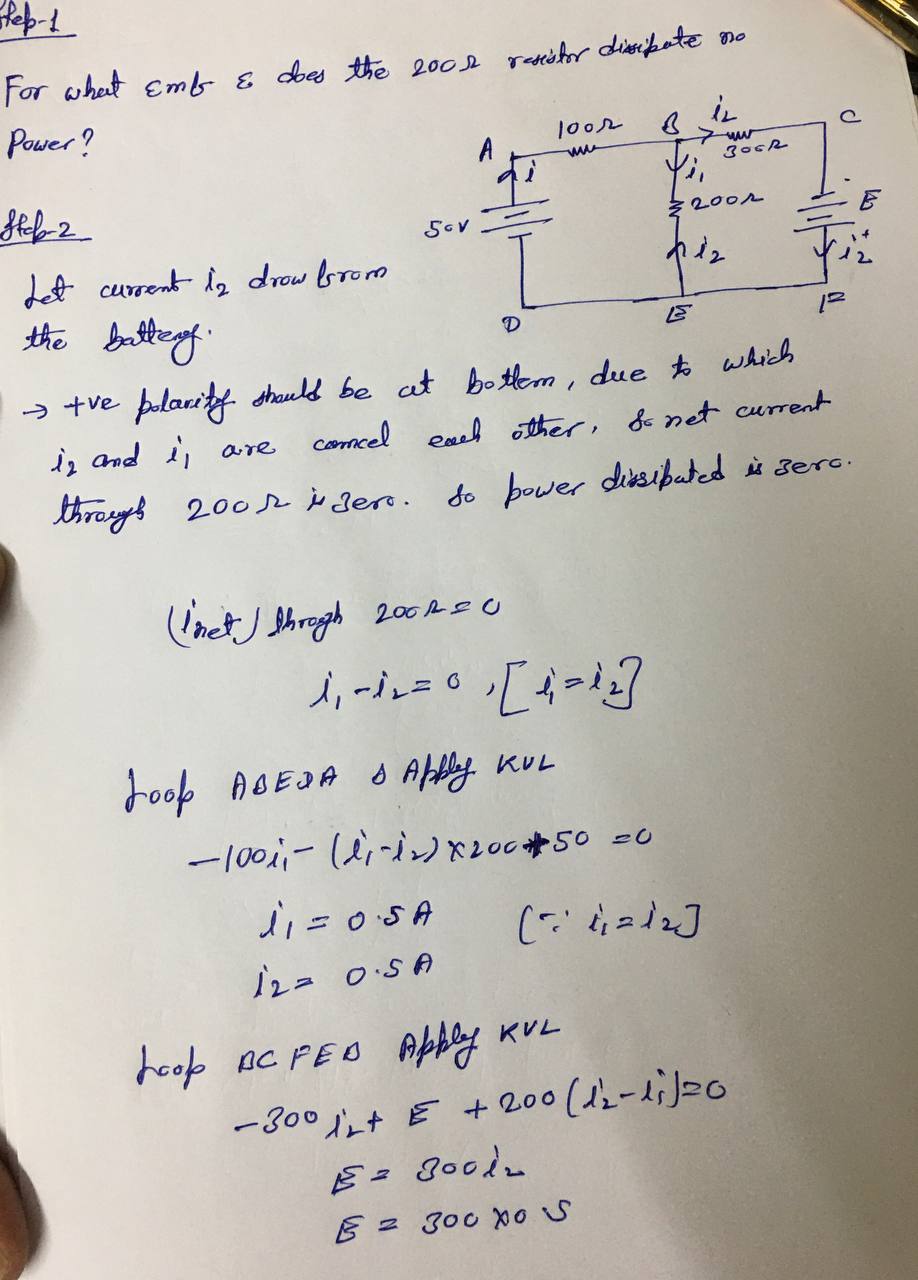 Step-1
For what Emf ε does the 200Ω resistor dissipate no
Power?
A 100Ω B i2 C
i i1 300Ω
50V 200Ω E
i2 + i2
D E F
Step-2
Let current i2 drow from
the battery.
→ +ve polarity should be at bottem, due to which
i2 and i1 are cancel each other, So net current
through 200Ω is zero. So power dissipated is zero.
(inet) throgh 200Ω = 0
i1 - i2 = 0, [i1 = i2]
Loop ABEDA Apply KVL
-100i1 - (i1-i2) x 200 + 50 = 0
i1 = 0.5A [∵ i1 = i2]
i2 = 0.5A
Loop BCFEB Apply KVL
-300 i2 + E + 200 (i2 - i1) = 0
E = 300i2
E = 300 x 0 5